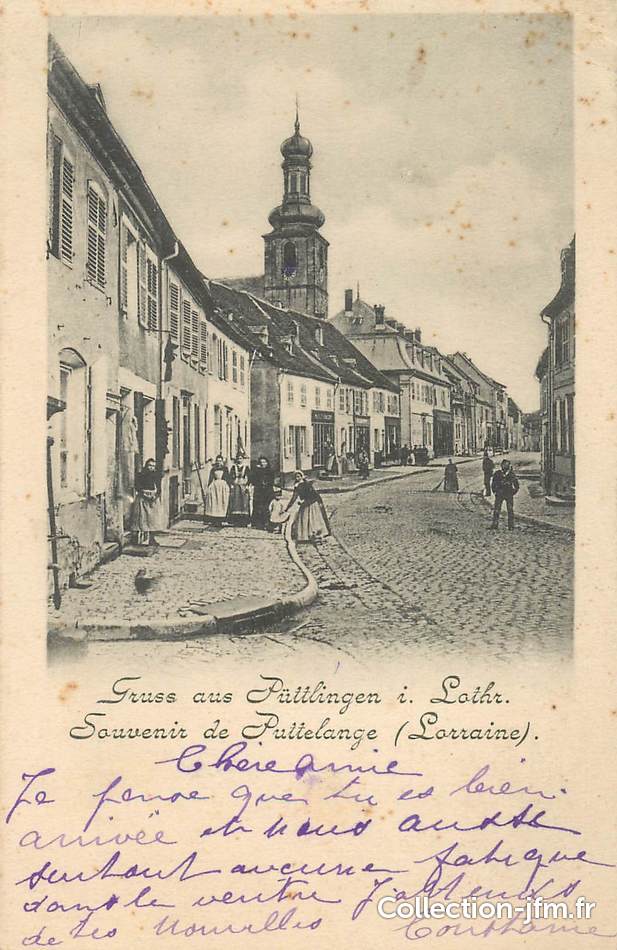 Gruss aus Püttlingen i. Lothr.
Souvenir de Puttelange (Lorraine).
Chère amie
Je pense que tu es bien
arrivée et nous aussi
surtout aucune fatigue
dans le ventre J'attends
de tes nouvelles Constance
Collection-jfm.fr